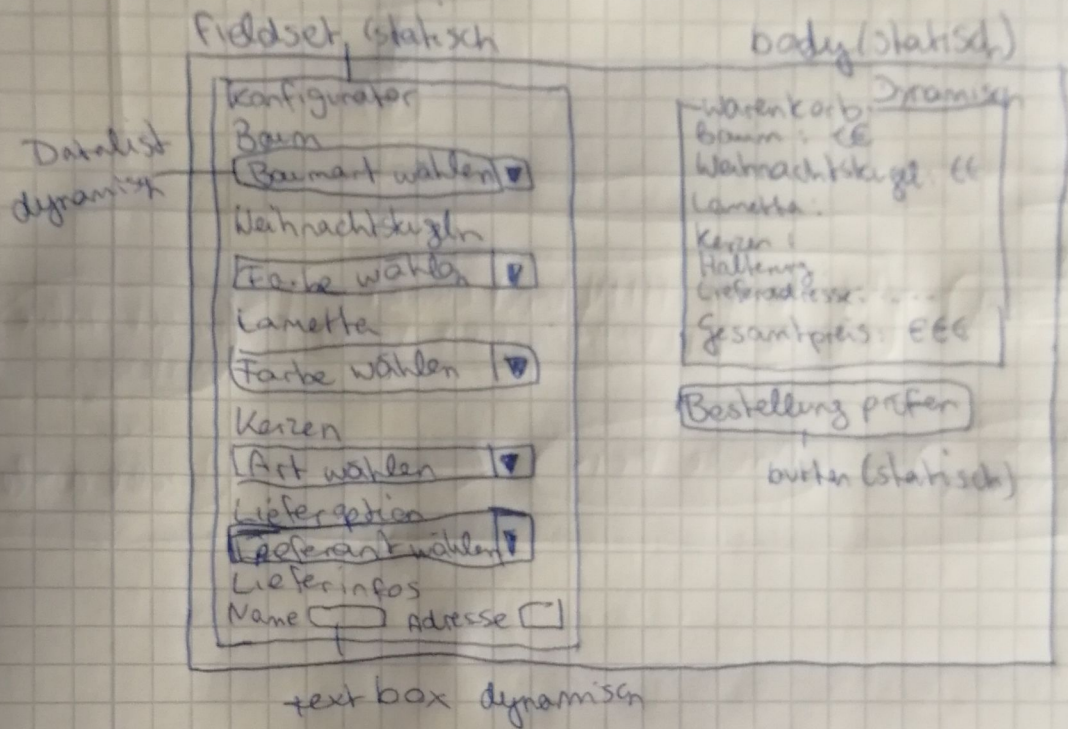 Fieldset (statisch
body (statisch)
Konfigurator
Baum
Datalist
dynamisch
Baumart wählen
Weihnachtskugeln
Farbe wählen
Lametta
Farbe wählen
Kerzen
Art wählen
Lieferoption
Lieferant wählen
Lieferinfos
Name Adresse
textbox dynamisch
Dynamisch
Warenkorb
Baum: €€
Weihnachtskugel: €€
Lametta:
Kerzen:
Halterung
Lieferadresse: ....
Gesamtpreis: €€€
Bestellung prüfen
button (statisch)